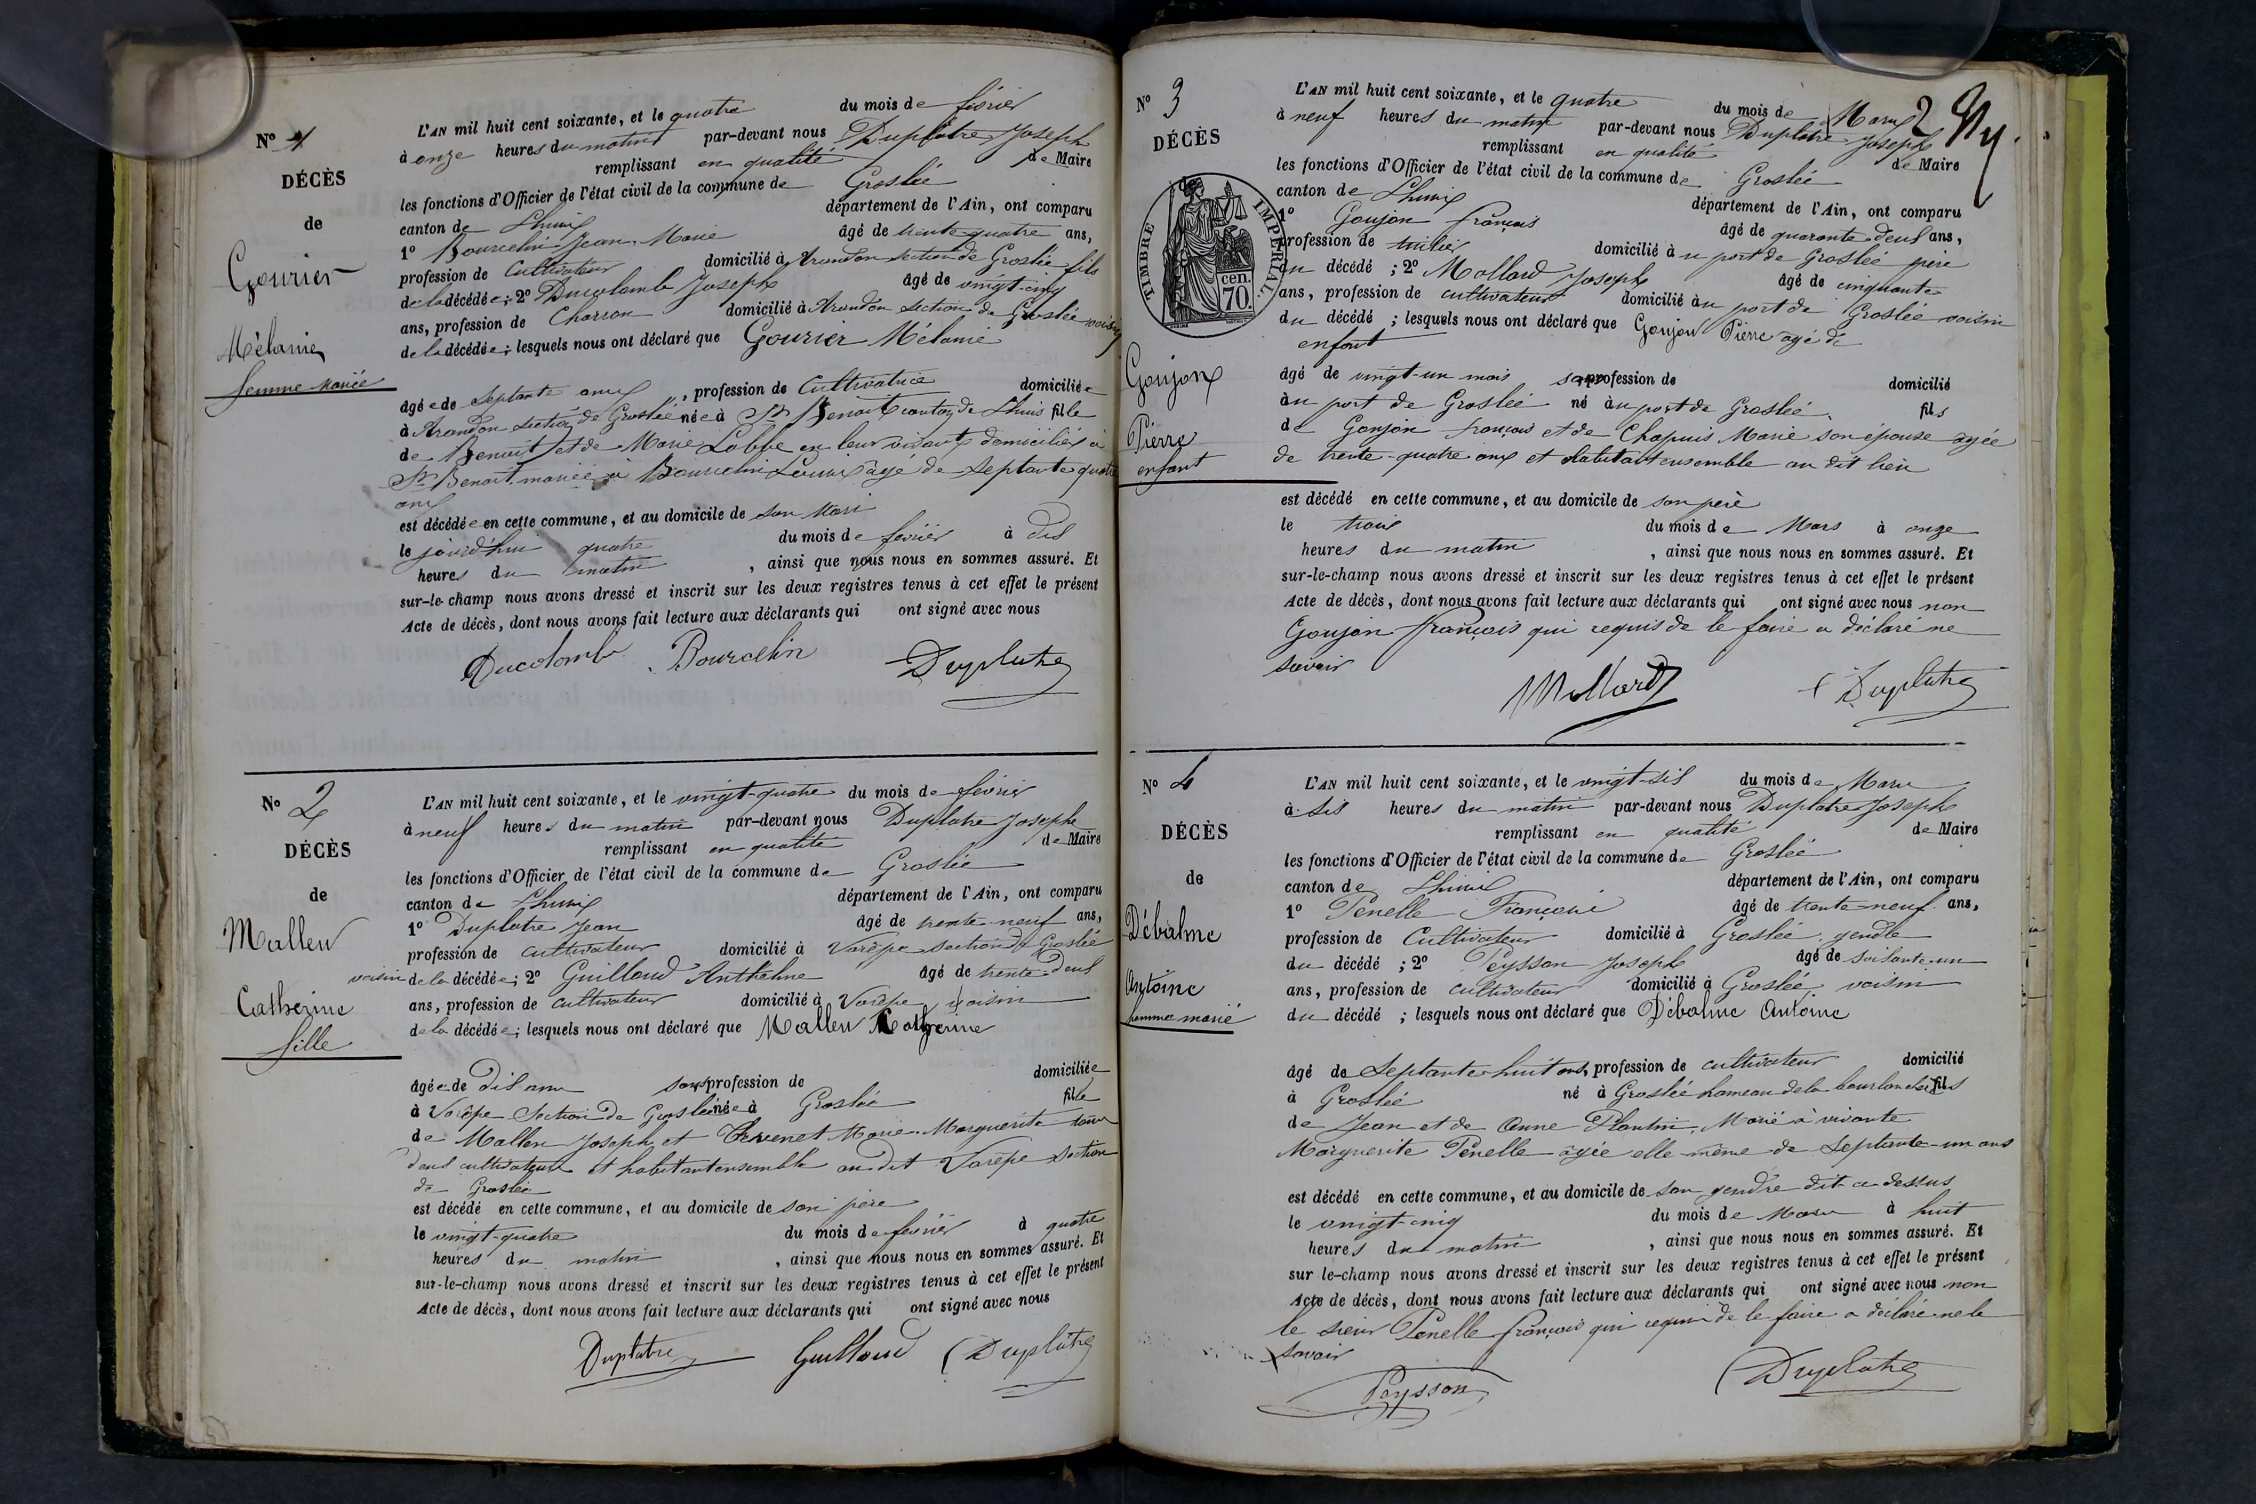 N° 1
DÉCÈS
de
Gourier
Mélanie
femme mariée
L'AN mil huit cent soixante, et le quatre du mois de février
à onze heures du matin par-devant nous Duplatre Joseph
remplissant en qualité de Maire
les fonctions d'Officier de l'état civil de la commune de Groslée
canton de Lhuis département de l'Ain, ont comparu
1° Bourcelin Jean Marie âgé de trente quatre ans,
profession de Cultivateur domicilié à Arandon section de Groslée fils
de la décédée; 2° Ducolomb Joseph âgé de vingt-cinq
ans, profession de Charron domicilié à Arandon section de Groslée voisin
de la décédée; lesquels nous ont déclaré que Gourier Mélanie
âgée de septante ans, profession de Cultivatrice domiciliée
à Arandon section de Groslée née à St Benoit canton de Lhuis fille
de Benoit et de Marie Labbe en leur vivant domiciliés à
St Benoit mariée à Bourcelin Louis âgé de septante quatre
ans
est décédée en cette commune, et au domicile de son Mari
le jourd'hui quatre du mois de février à dis
heures du matin, ainsi que nous nous en sommes assuré. Et
sur-le-champ nous avons dressé et inscrit sur les deux registres tenus à cet effet le présent
Acte de décès, dont nous avons fait lecture aux déclarants qui ont signé avec nous
Ducolomb Bourcelin Duplatre
N° 2
DÉCÈS
de
Mallen
Catherine
fille
L'AN mil huit cent soixante, et le vingt-quatre du mois de février
à neuf heures du matin par-devant nous Duplatre Joseph
remplissant en qualité de Maire
les fonctions d'Officier de l'état civil de la commune de Groslée
canton de Lhuis département de l'Ain, ont comparu
1° Duplatre Jean âgé de trente-neuf ans,
profession de cultivateur domicilié à Varèpe section de Groslée
voisin de la décédée; 2° Guilloud Anthelme âgé de trente-deux
ans, profession de cultivateur domicilié à Varèpe voisin
de la décédée; lesquels nous ont déclaré que Mallen Catherine
âgée de dis ans sans profession de domiciliée
à Varèpe Section de Groslée née à Groslée fille
de Mallen Joseph et Thevenet Marie Marguerite tous
deux cultivateurs et habitant ensemble au dit Varèpe section
de Groslée
est décédé en cette commune, et au domicile de son père
le vingt-quatre du mois de février à quatre
heures du matin, ainsi que nous nous en sommes assuré. Et
sur-le-champ nous avons dressé et inscrit sur les deux registres tenus à cet effet le présent
Acte de décès, dont nous avons fait lecture aux déclarants qui ont signé avec nous
Duplatre Guilloud Duplatre
2
N° 3
DÉCÈS
TIMBRE IMPÉRIAL
cen. 70.
Goujon
Pierre
enfant
L'AN mil huit cent soixante, et le quatre du mois de Mars
à neuf heures du matin par-devant nous Duplatre Joseph
remplissant en qualité de Maire
les fonctions d'Officier de l'état civil de la commune de Groslée
canton de Lhuis département de l'Ain, ont comparu
1° Goujon françois âgé de quarante-deux ans,
profession de domicilié au port de Groslée père
du décédé ; 2° Mollard Joseph âgé de cinquante
ans, profession de cultivateur domicilié au port de Groslée voisin
du décédé ; lesquels nous ont déclaré que Goujon Pierre agé de
enfant
âgé de vingt-un mois sans profession de domicilié
au port de Groslée né au port de Groslée fils
de Goujon françois et de Chapuis Marie son épouse agée
de trente-quatre ans et habitant ensemble au dit lieu
est décédé en cette commune, et au domicile de son père
le trois du mois de Mars à onze
heures du matin, ainsi que nous nous en sommes assuré. Et
sur-le-champ nous avons dressé et inscrit sur les deux registres tenus à cet effet le présent
Acte de décès, dont nous avons fait lecture aux déclarants qui ont signé avec nous non
Goujon françois qui requis de le faire a déclaré ne
savoir
Mollard Duplatre
N° 4
DÉCÈS
de
Débalme
Antoine
homme marié
L'AN mil huit cent soixante, et le vingt-sis du mois de Mars
à sis heures du matin par-devant nous Duplatre Joseph
remplissant en qualité de Maire
les fonctions d'Officier de l'état civil de la commune de Groslée
canton de Lhuis département de l'Ain, ont comparu
1° Penelle François âgé de trente-neuf ans,
profession de Cultivateur domicilié à Groslée gendre
du décédé ; 2° Peysson Joseph âgé de soixante-un
ans, profession de cultivateur domicilié à Groslée voisin
du décédé ; lesquels nous ont déclaré que Débalme Antoine
âgé de septante-huit ans, profession de cultivateur domicilié
à Groslée né à Groslée hameau de la fils
de Jean et de Anne Plantin. Marié à vivante
Marguerite Penelle agée elle-même de septante-un ans
est décédé en cette commune, et au domicile de son gendre dit ci dessus
le vingt-cinq du mois de Mars à huit
heures du matin, ainsi que nous nous en sommes assuré. Et
sur le-champ nous avons dressé et inscrit sur les deux registres tenus à cet effet le présent
Acte de décès, dont nous avons fait lecture aux déclarants qui ont signé avec nous non
le sieur Penelle françois qui requis de le faire a déclaré ne le
savoir
Peysson Duplatre